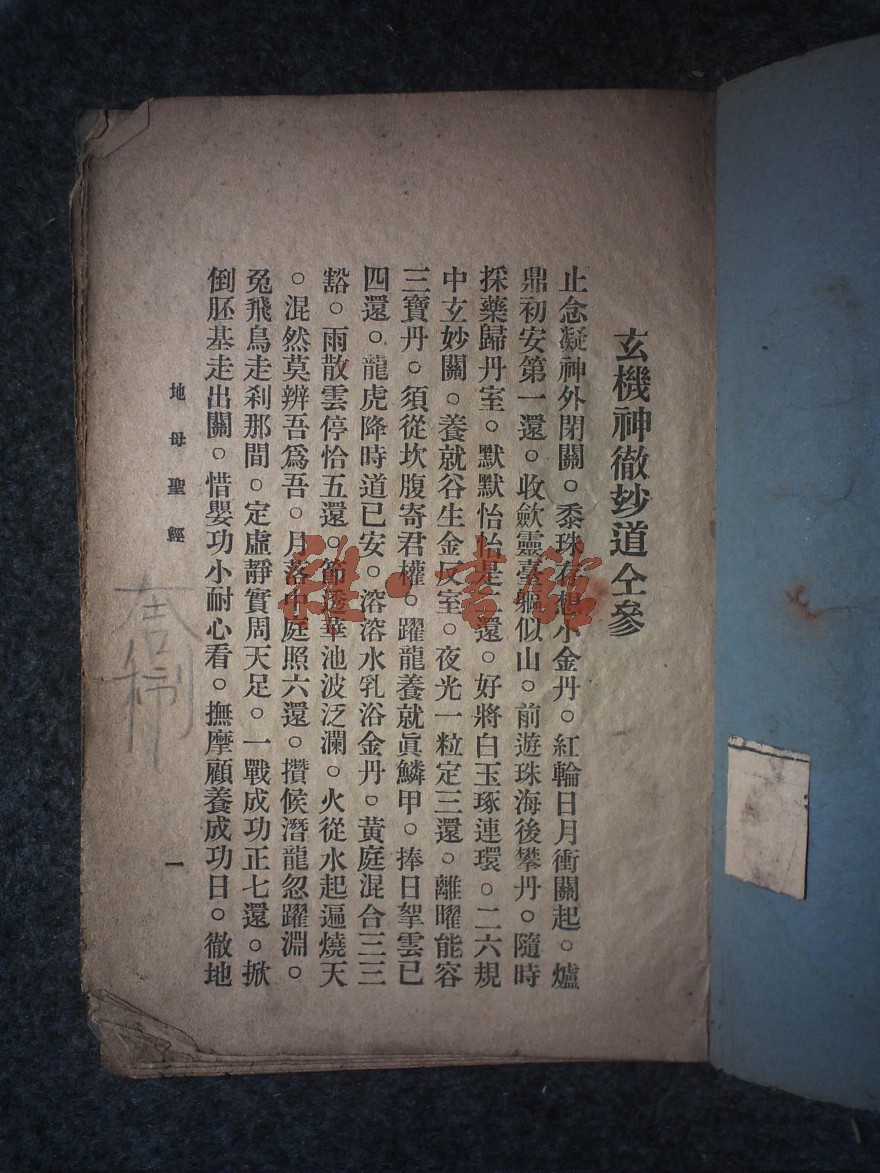 玄機神徹玅道仝參
止念凝神外閉關。黍珠有想小金丹。紅輪日月衝關起。爐
鼎初安第一還。收斂靈臺似山。前遊珠海後攀丹。隨時
採藥歸丹室。默默怡怡是二還。好將白玉琢連環。二六規
中玄妙關。養就谷生金反室。夜光一粒定三還。離曜能容
三寶丹。須從坎腹寄君權。躍龍養就眞鱗甲。捧日拏雲已
四還。龍虎降時道已安。溶溶水乳浴金丹。黃庭混合三三
豁。雨散雲停恰五還。節透華池波泛瀾。火從水起逼燒天
。混然莫辨吾爲吾。月落中庭照六還。攢候潛龍忽躍淵。
兔飛鳥走刹那間。定虛靜實周天足。一戰成功正七還。掀
倒胚基走出關。惜嬰功小耐心看。撫摩顧養成功日。徹地
地母聖經
一
雜·書館